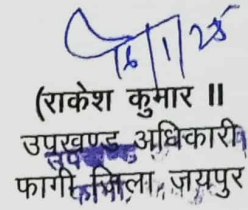 16/1/25
(राकेश कुमार II
उपखण्ड अधिकारी
फागी जिला जयपुर